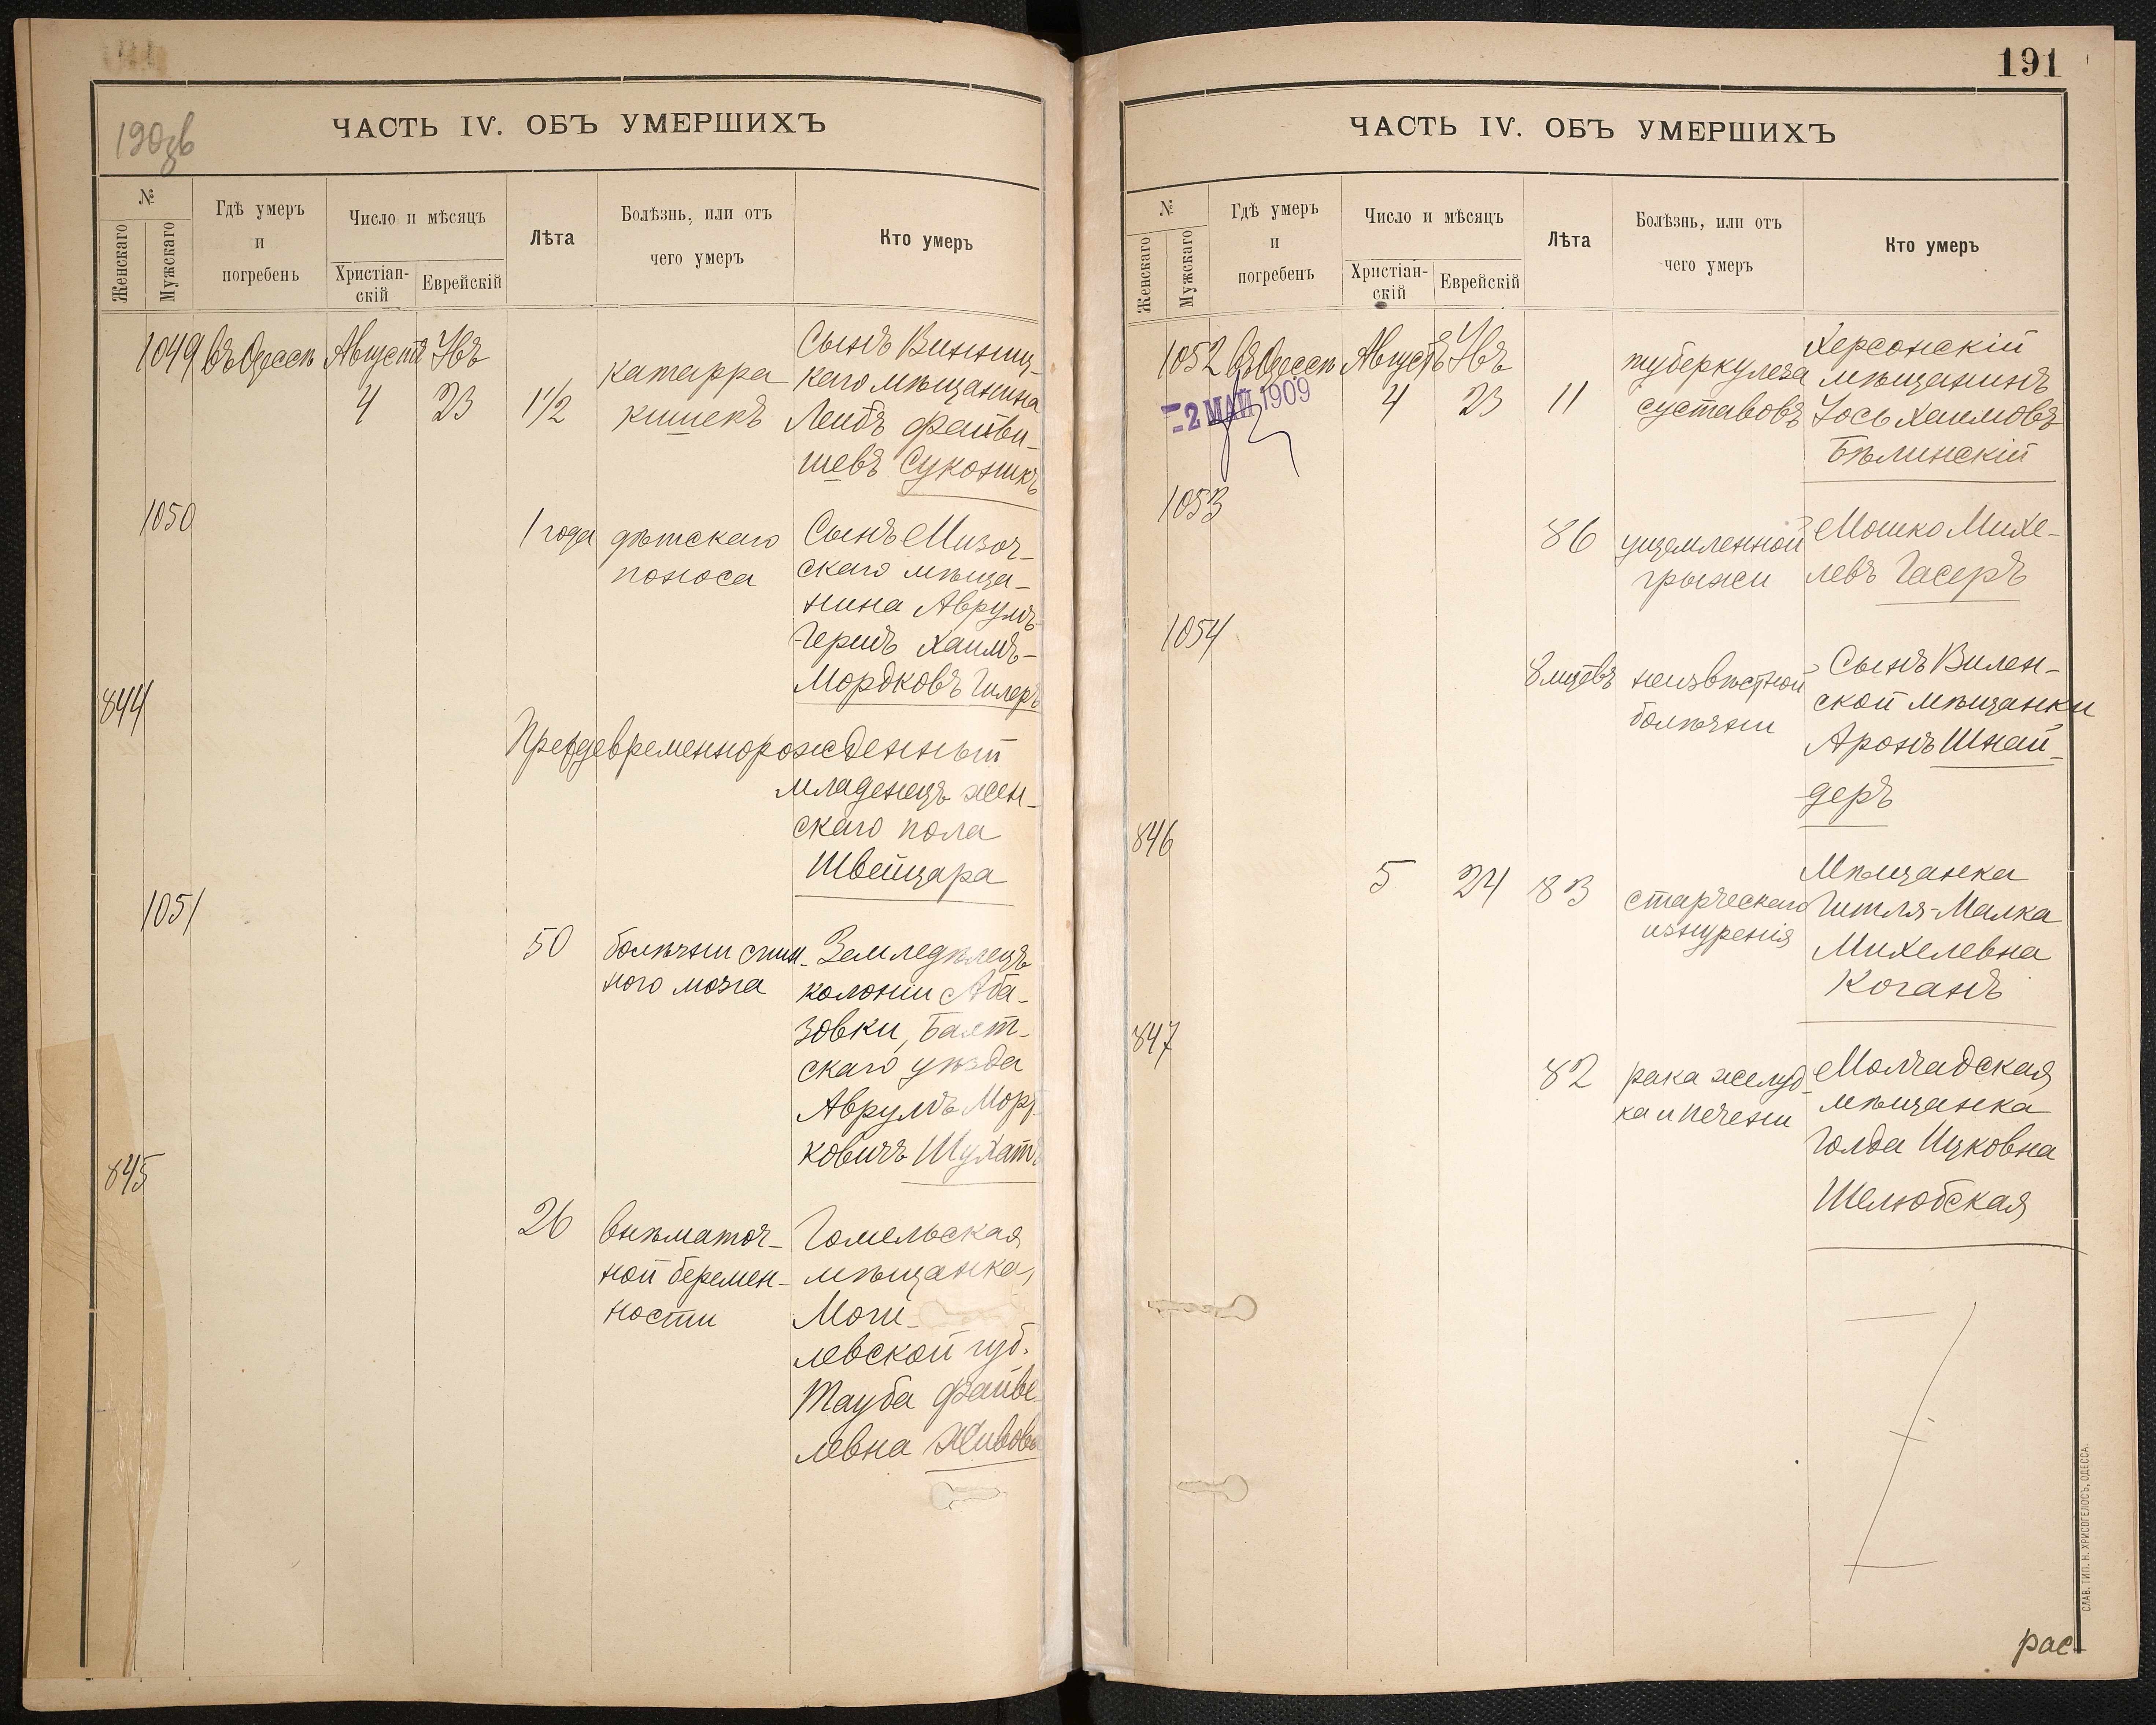 190зв
ЧАСТЬ IV. ОБЪ УМЕРШИХЪ
№
Женскаго
Мужскаго
Гдѣ умеръ
и
погребенъ
Число и мѣсяцъ
Христіан-
скій
Еврейскій
Лѣта
Болѣзнь, или отъ
чего умеръ
Кто умеръ
1049 въ Одессѣ Августъ Увъ
4 23 1 1/2
катарра
кишекъ
Сынъ Винниц-
каго мѣщанина
Лейбъ Файви-
шевъ Суконикъ
1050
1 года
дѣтскаго
поноса
Сынъ Мизоч-
скаго мѣща-
нина Аврумъ-
Гершъ Хаимъ-
Мордковъ Гилеръ
844
Преждевременнорожденный
младенецъ жен-
скаго пола
Швейцара
1051
50
болѣзни спин-
ного мозга
Земледѣлецъ
колоніи Аба-
зовки, Балт-
скаго уѣзда
Аврумъ Морд-
ковичъ Шухатъ
845
26
внѣматоч-
ной беремен-
ности
Гомельская
мѣщанка,
Моги-
левской губ.
Тауба Файве-
левна Живова
191
ЧАСТЬ IV. ОБЪ УМЕРШИХЪ
№
Женскаго
Мужскаго
Гдѣ умеръ
и
погребенъ
Число и мѣсяцъ
Христіан-
скій
Еврейскій
Лѣта
Болѣзнь, или отъ
чего умеръ
Кто умеръ
1052 въ Одессѣ Августъ Увъ
-2 МАЙ 1909
4 23 11
туберкулеза
суставовъ
Херсонскій
мѣщанинъ
Іось Хаимовъ
Бѣлинскій
1053
86
ущемленной
грыжи
Мошко Михе-
левъ Гасеръ
1054
8 мцевъ
неизвѣстной
болѣзни
Сынъ Вилен-
ской мѣщанки
Аронъ Шнай-
деръ
846
5 24 83
старческаго
изнуренія
Мѣщанка
Гитля-Малка
Михелевна
Коганъ
847
82
рака желуд-
ка и печени
Молчадская
мѣщанка
Голда Ицковна
Шелюбская
СЛАВ. ТИП. Н. ХРИСОГЕЛОСЪ, ОДЕССА.
рас-